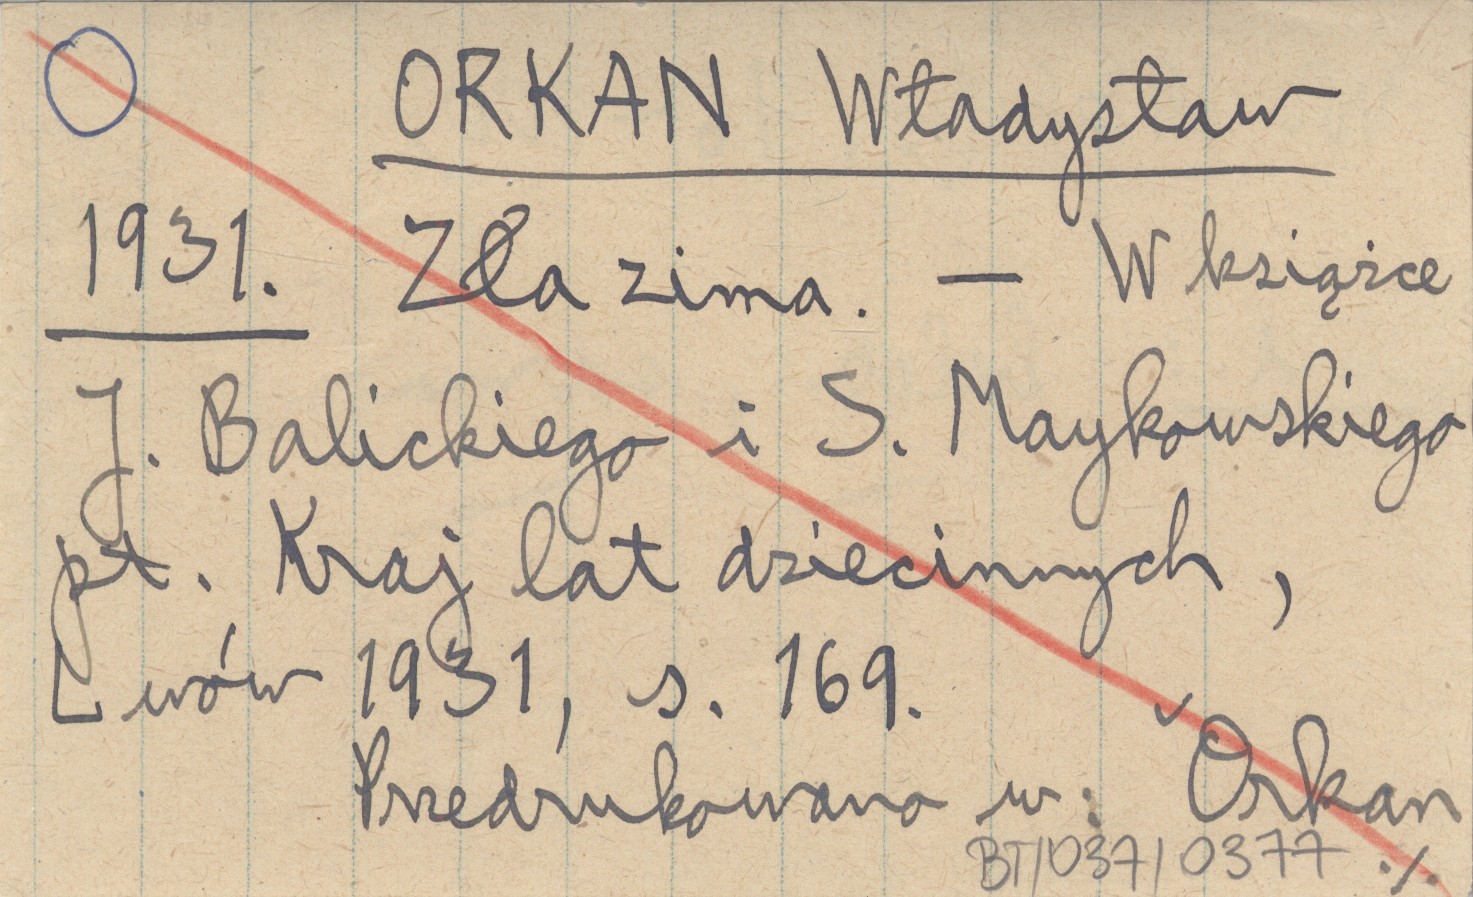 ORKAN Władysław
1931. Zła zima. — W książce
J. Balickiego i S. Maykowskiego
pt. Kraj lat dziecinnych,
Lwów 1931, s. 169.
Przedrukowano w: Orkan
BT/037/0377 ./.